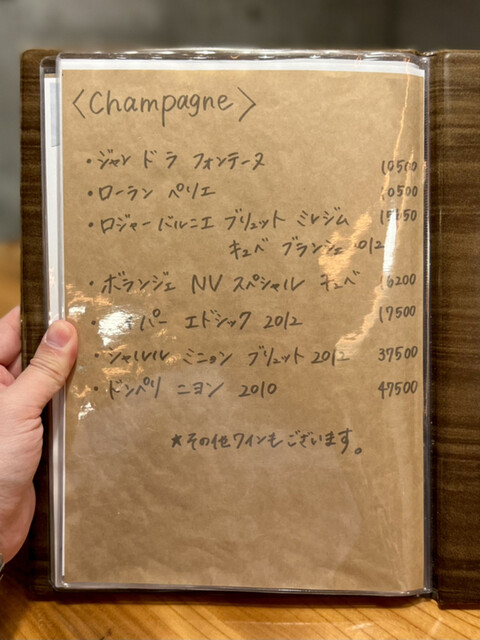 〈Champagne〉
・ジャン ド ラ フォンテーヌ 10500
・ローラン ペリエ 10500
・ロジャー バルニエ ブリュット ミレジム
キュベ ブランシェ 2012
・ボランジェ NV スペシャル キュベ 16200
エドシック 2012 17500
・シャルル ミニョン ブリュット 2012 37500
・ドンペリ ニヨン 2010 47500
★その他ワインもございます。